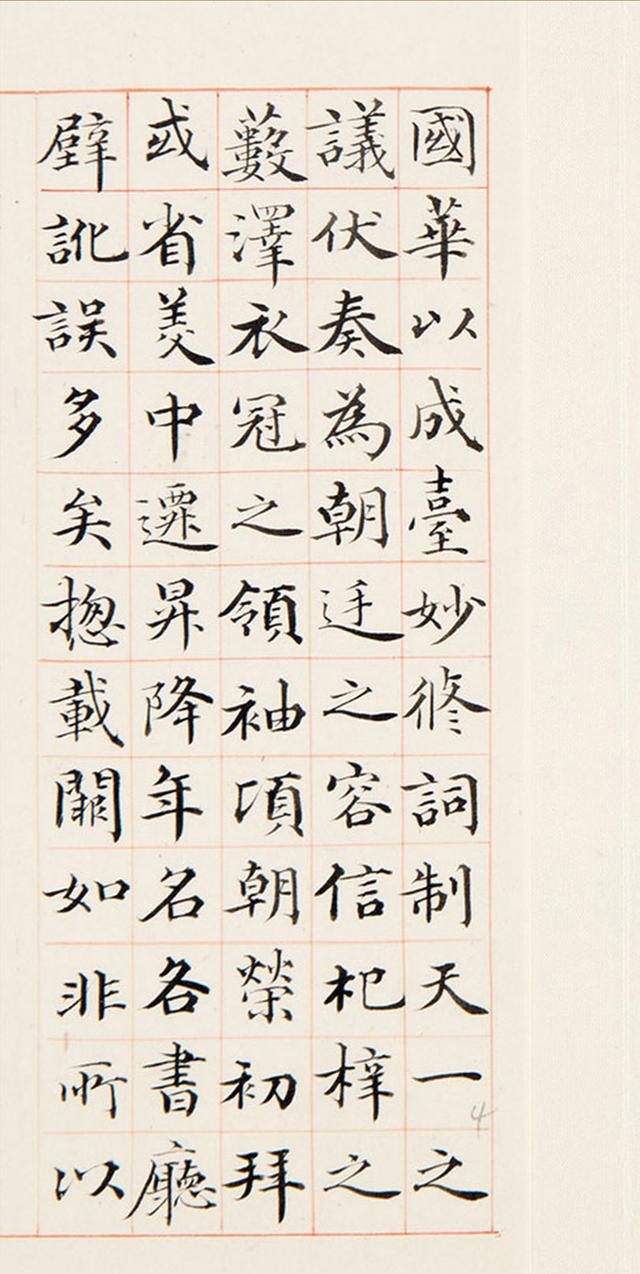 國華以成臺妙修詞制天一之
議伏奏為朝廷之容信杞梓之
藪澤衣冠之領袖頃朝榮初拜
或省美中遷昇降年名各書廳
壁訛誤多矣揔載闕如非所以
4